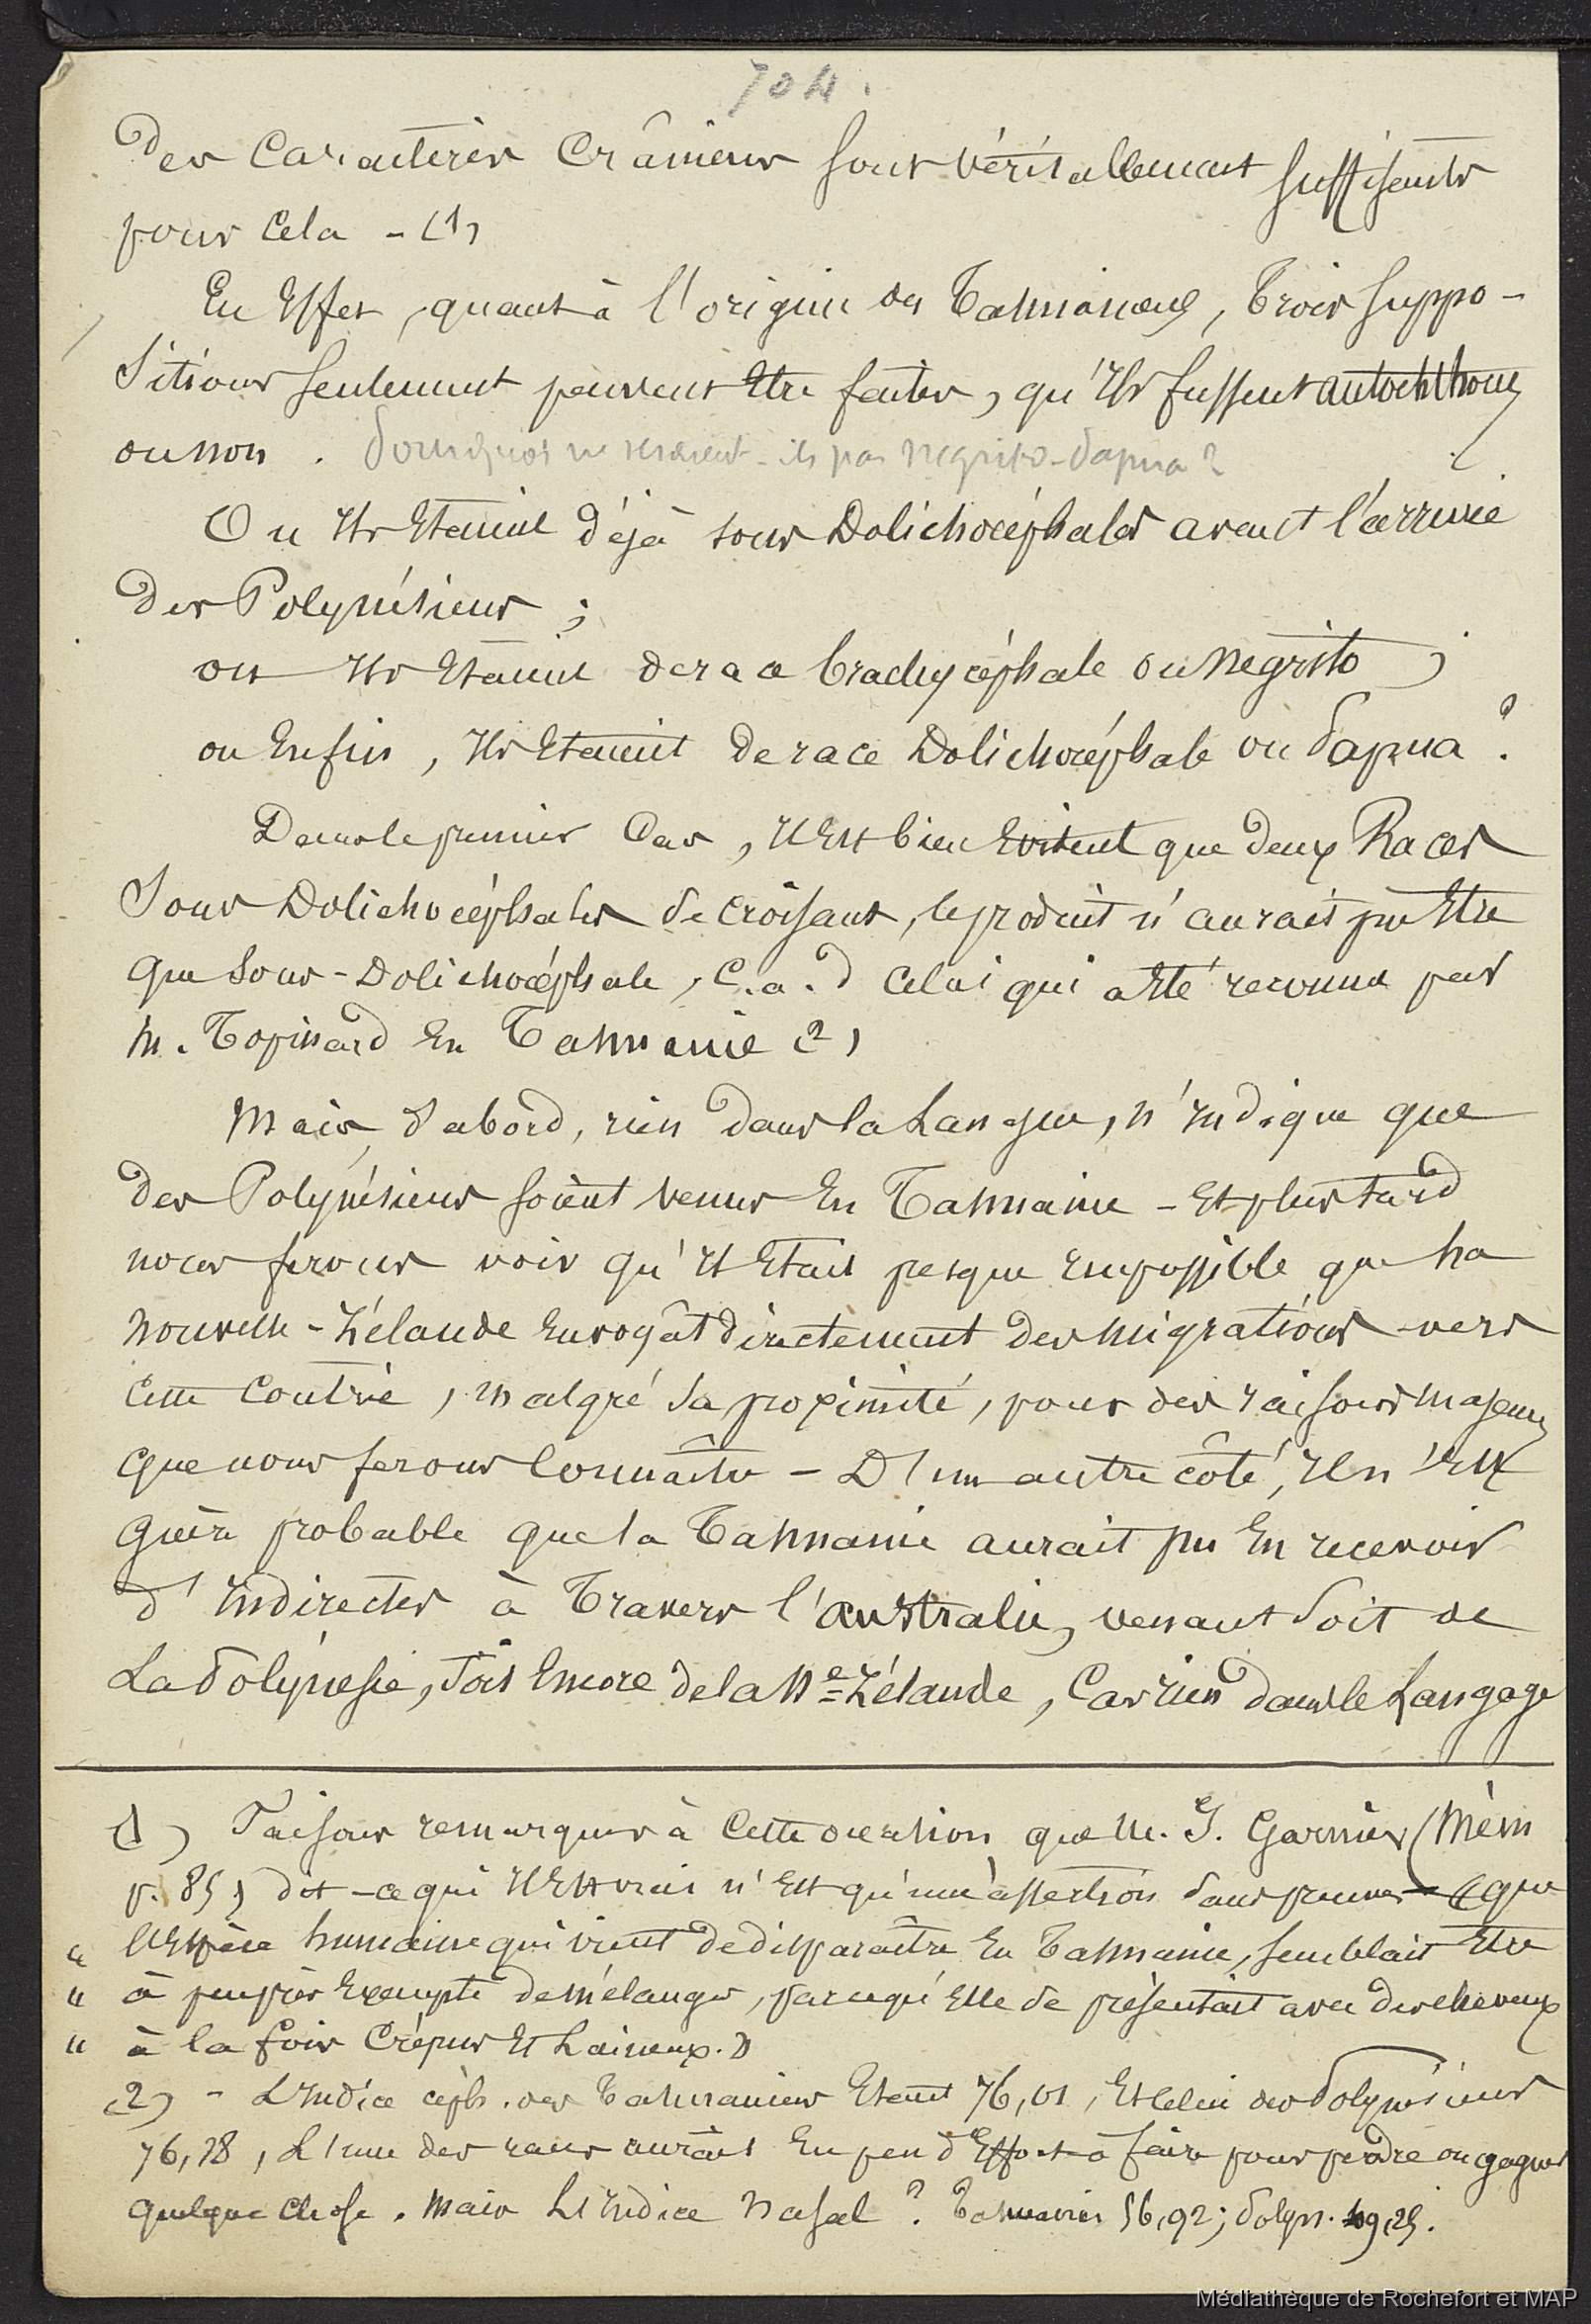 704.
des Caractères Crâniens sont véritablement suffisants
pour cela - (1)
En Effet, quant à l'origine des Tasmaniens, Trois suppo-
sitions seulement peuvent Etre faites, qu'Ils fussent autochthones
ou non. Pourquoi ne seraient-ils pas Negrito-Papua?
Ou Ils Etaient déjà sous Dolichocéphales avant l'arrivée
des Polynésiens;
ou Ils Etaient de race brachycéphale ou Negrito;
ou Enfin, Ils Etaient de race Dolichocéphale ou Papua?
Dans le premier Cas, Il Est bien Evident que deux Races
Sous Dolichocéphales se croisant, le produit n'aurait pu Etre
que Sous-Dolichocéphale, C.a.d celui qui a Eté reconnu par
M. Topinard En Tasmanie (2)
Mais, d'abord, rien dans la Langue, n'Indique que
des Polynésiens soient venus En Tasmanie - Et plus tard
nous ferons voir qu'Il Etait presque Impossible que La
Nouvelle-Zélande Envoyât directement des migrations vers
Cette Contrée, malgré sa proximité, pour des raisons majeures
que nous ferons Connaître - D'un autre côté, Il n'Est
guère probable que la Tasmanie aurait pu En recevoir
d'Indirectes à Travers l'Australie, venant soit de
La Polynésie, soit Encore de la Nle Zélande, Car rien dans le Langage
(1) Faisons remarquer à Cette occasion que M. J. Garnier (Mém
p. 85) dit - ce qui Il Est vrai n'Est qu'une assertion sans preuves - (que
" l'Espèce humaine qui vient de disparaître En Tasmanie, semblait Etre
" à peu près Exempte de mélanges, parcequ'Elle se présentait avec des cheveux
" à la fois Crépus Et Laineux.»
(2) - L'Indice céph. des Tasmaniens Etant 76,01, Et celui des Polynésiens
76,28, L'une des races aurait Eu peu d'Effort à faire pour perdre ou gagner
quelque chose. Mais L'Indice Nasal? Tasmanies 56,92; Polyn. 49,25.
Médiathèque de Rochefort et MAP